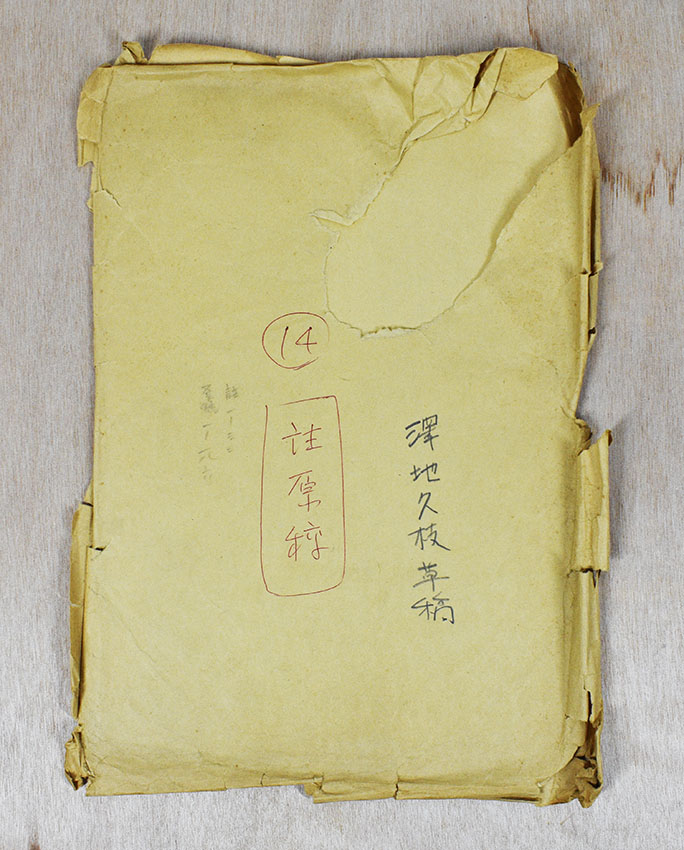 14
澤地久枝草稿
註原稿